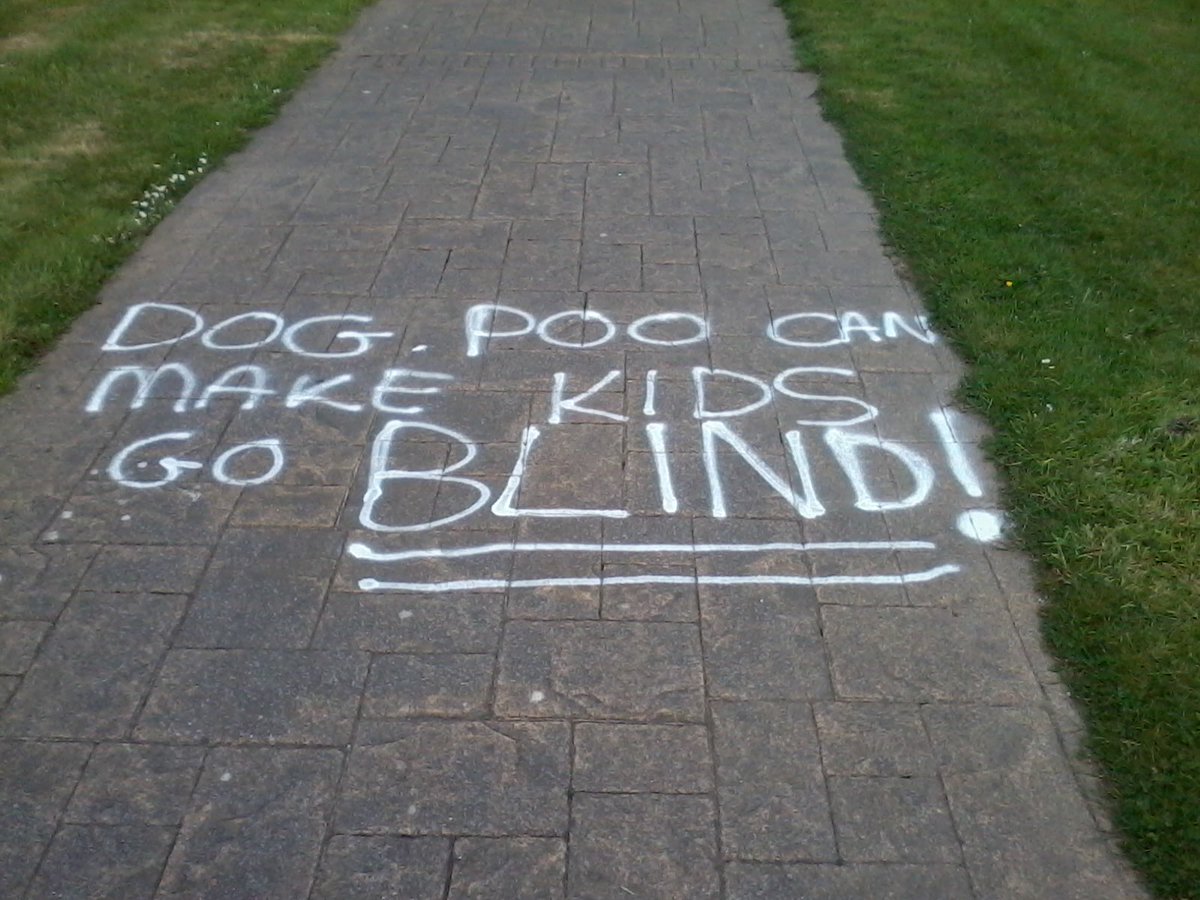 DOG. POO CAN
MAKE KIDS
GO BLIND!